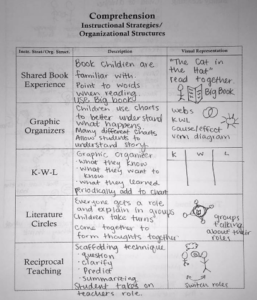 Comprehension
Instructional Strategies/
Organizational Structures
Instr. Strat/Org. Struct:
Description
Visual Representation
Shared Book
Experience
Book Children are
familiar with.
Point to words
when reading.
Use Big book!
"The Cat in
the Hat"
read together
Big Book
Graphic
Organizers
Children use charts
to better understand
what happens.
Many different charts.
Allow students to
understand story.
webs
KWL
cause/effect
venn diagram
K-W-L
Graphic Organizer
- what they know
- what they want to
know
- what they learned
periodically add to chart
K W L
Literature
Circles
Everyone gets a role
and explain in groups
Children take turns
come together to
form thoughts together
groups
talking
about their
roles
Reciprocal
Teaching
Scaffolding technique
- question
- clarify
- Predict
- summarizing
Student takes on
teachers role.
Switch roles